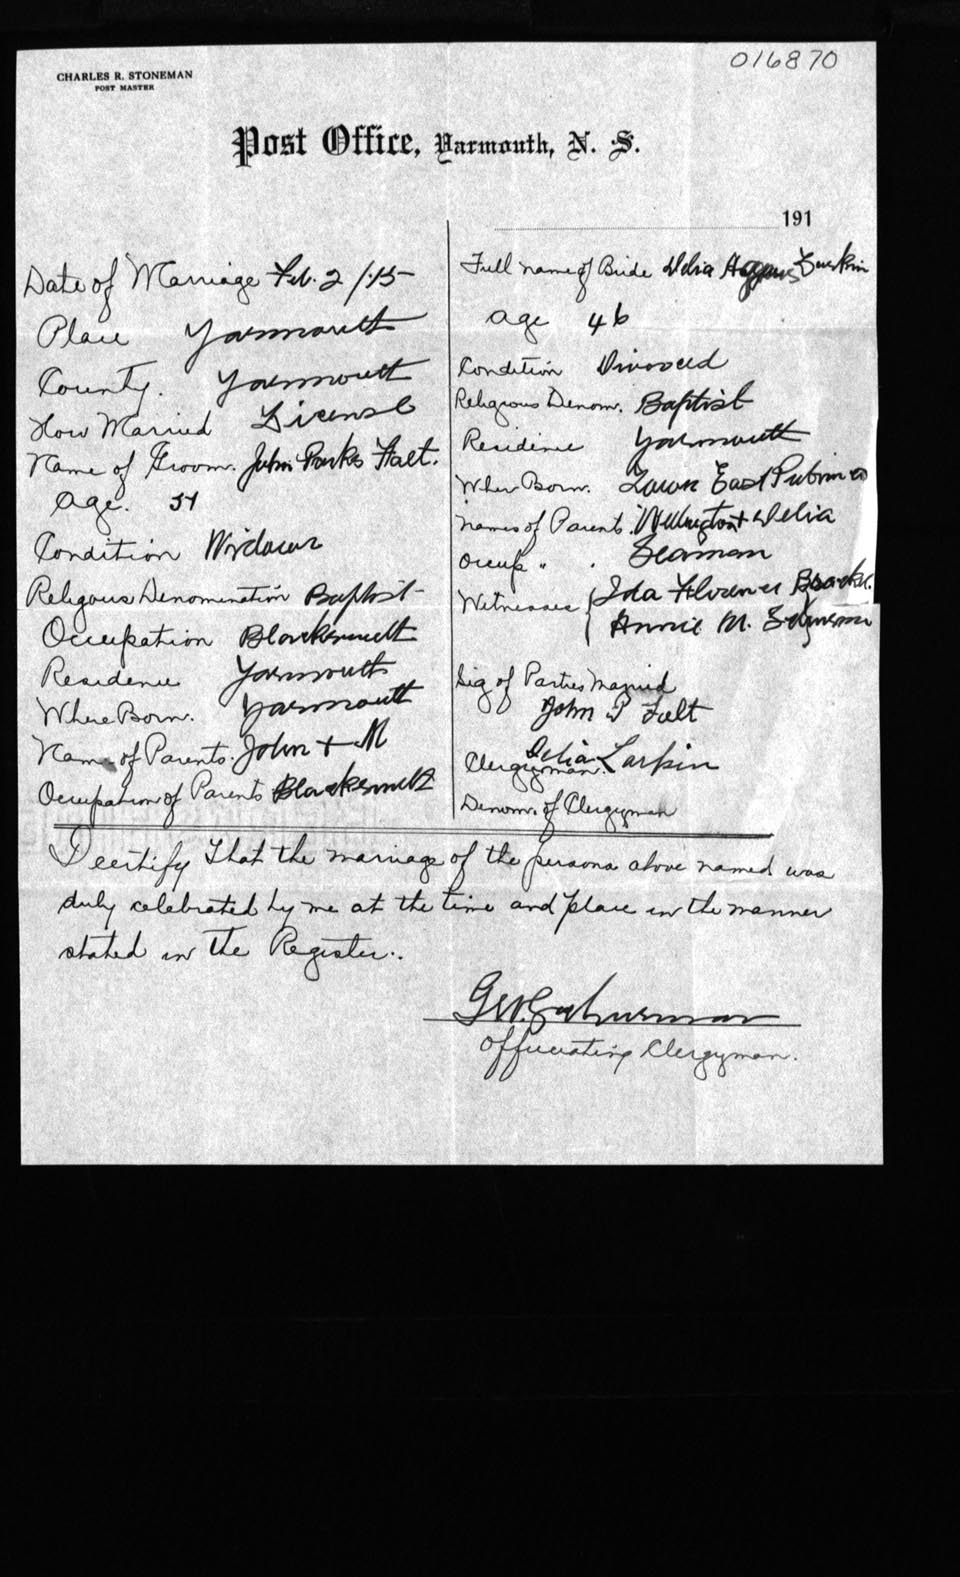 016870
CHARLES R. STONEMAN
POST MASTER
Post Office, Yarmouth, N. S.
191
Date of Marriage Feb. 2 /15
Place Yarmouth
County. Yarmouth
How Married License
Name of Groom. John Parks Falt.
Age. 51
Condition Widower
Religous Denomination Baptist
Occupation Blacksmith
Residence Yarmouth
Where Born. Yarmouth
Name of Parents. John + M
Occupation of Parents Blacksmith
Full name of Bride Delia Larkin
Age 46
Condition Divorced
Religious Denom. Baptist
Residence Yarmouth
Wher Born. East Pubnico
Names of Parents. Wellington + Delia
Occup " . Seaman
Witnesses Ida Florence
Annie M.
Sig of Parties Married
John P Falt
Delia Larkin
Clergyman.
Denom. of Clergyman
I certify that the marriage of the persons above named was
duly celebrated by me at the time and place in the manner
stated in the Register.
Officiating Clergyman.